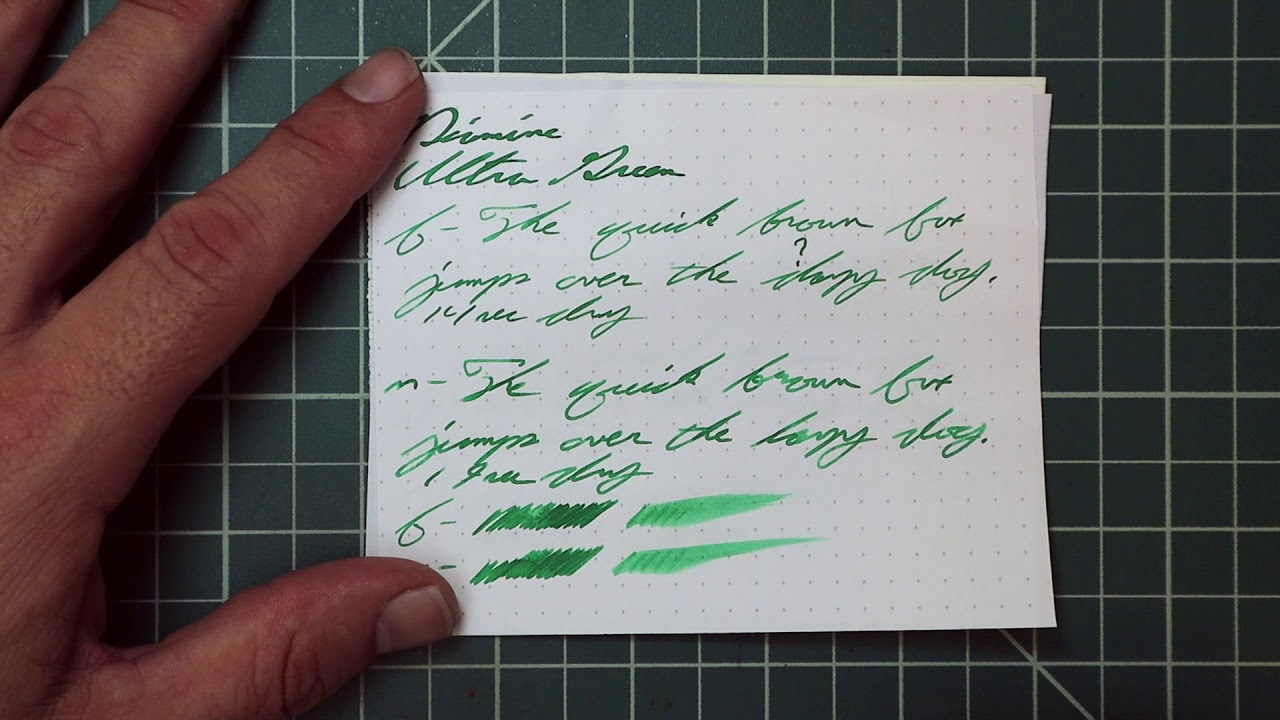 Diamine
Ultra Green
f - The quick brown fox
?
jumps over the dog.
dry
m - The quick brown fox
jumps over the lazy dog.
dry
f -